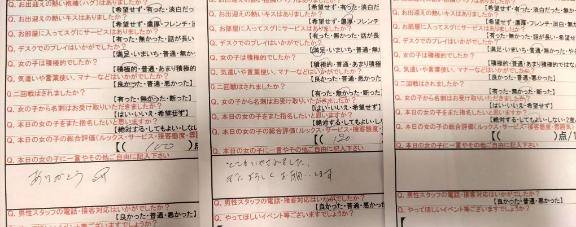 Q. お出迎えの熱いキスはありましたか？
【希望せず・濃厚・フレンチ
Q. お部屋に入ってスグにサービスはありましたか？
【有った・無かった・話が長い
Q. デスクでのプレイはいかがでしたか？
【満足・いまいち・普通・無か
Q. 女の子は積極的でしたか？
【積極的・普通・あまり積極的
Q. 気遣いや言葉使い、マナーなどはいかがでしたか？
【良かった・普通・悪かった】
Q. 二回戦はされましたか？
【有った・無かった・断った】
Q. 女の子から名刺はお受け取りいただきましたか？
【はい・いいえ・希望せず】
Q. 本日の女の子をまた指名したいと思いますか？
【絶対する・してもよい・しな
Q. 本日の女の子の総合評価（ルックス・サービス・接客態度・
【（ 100 ）点
Q. 本日の女の子に一言やその他ご自由に記入下さい
ありがとう
Q. 男性スタッフの電話・接客対応はいかがでしたか？
【良かった・普通・悪かった】
Q. やってほしいイベント等ございますでしょうか？
Q. お出迎えの熱いキスはありましたか？
【希望せず・濃厚・フレンチ・
Q. お部屋に入ってスグにサービスはありましたか？
【有った・無かった・話が長い
Q. デスクでのプレイはいかがでしたか？
【満足・いまいち・普通・無か
Q. 女の子は積極的でしたか？
【積極的・普通・あまり積極的
Q. 気遣いや言葉使い、マナーなどはいかがでしたか？
【良かった・普通・悪かった】
Q. 二回戦はされましたか？
【有った・無かった・断った】
Q. 女の子から名刺はお受け取りいただきましたか？
【はい・いいえ・希望せず】
Q. 本日の女の子をまた指名したいと思いますか？
【絶対する・してもよい・しな
Q. 本日の女の子の総合評価（ルックス・サービス・接客態度・
Q. 本日の女の子に一言やその他ご自由に記入下さい
とてもいやされました
またよろしくお願いします
Q. 男性スタッフの電話・接客対応はいかがでしたか？
【良かった・普通・悪かった】
Q. やってほしいイベント等ございますでしょうか？
Q. お出迎えの熱いキスはありましたか？
【希望せず・濃厚・フレンチ・
Q. お部屋に入ってスグにサービスはありましたか？
【有った・無かった・話が長い・
Q. デスクでのプレイはいかがでしたか？
【満足・いまいち・普通・無か
Q. 女の子は積極的でしたか？
【積極的・普通・あまり積極的
Q. 気遣いや言葉使い、マナーなどはいかがでしたか？
【良かった・普通・悪かった】
Q. 二回戦はされましたか？
【有った・無かった・断った】
Q. 女の子から名刺はお受け取りいただきましたか？
【はい・いいえ・希望せず】
Q. 本日の女の子をまた指名したいと思いますか？
【絶対する・してもよい・しない
Q. 本日の女の子の総合評価（ルックス・サービス・接客態度・
）点/
Q. 本日の女の子に一言やその他ご自由に記入下さい
Q. 男性スタッフの電話・接客対応はいかがでしたか？
【良かった・普通・悪かった】
Q. やってほしいイベント等ございますでしょうか？